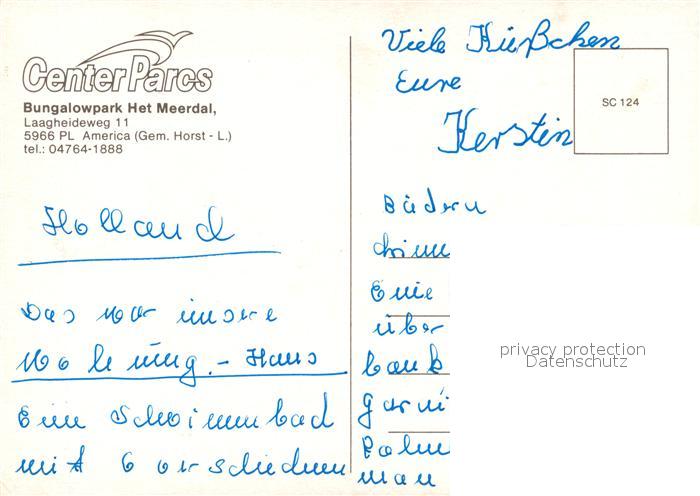 Center Parcs
Bungalowpark Het Meerdal,
Laagheideweg 11
5966 PL America (Gem. Horst - L.)
tel.: 04764-1888
Holland
Das war unsere
Wohnung. - Haus
Ein Schwimmbad
mit 6 verschiedenen
Viele Küßchen
Eure
Kerstin
SC 124
Bädern
drinn
Eine
über
bank
garni
Palm
man
privacy protection
Datenschutz